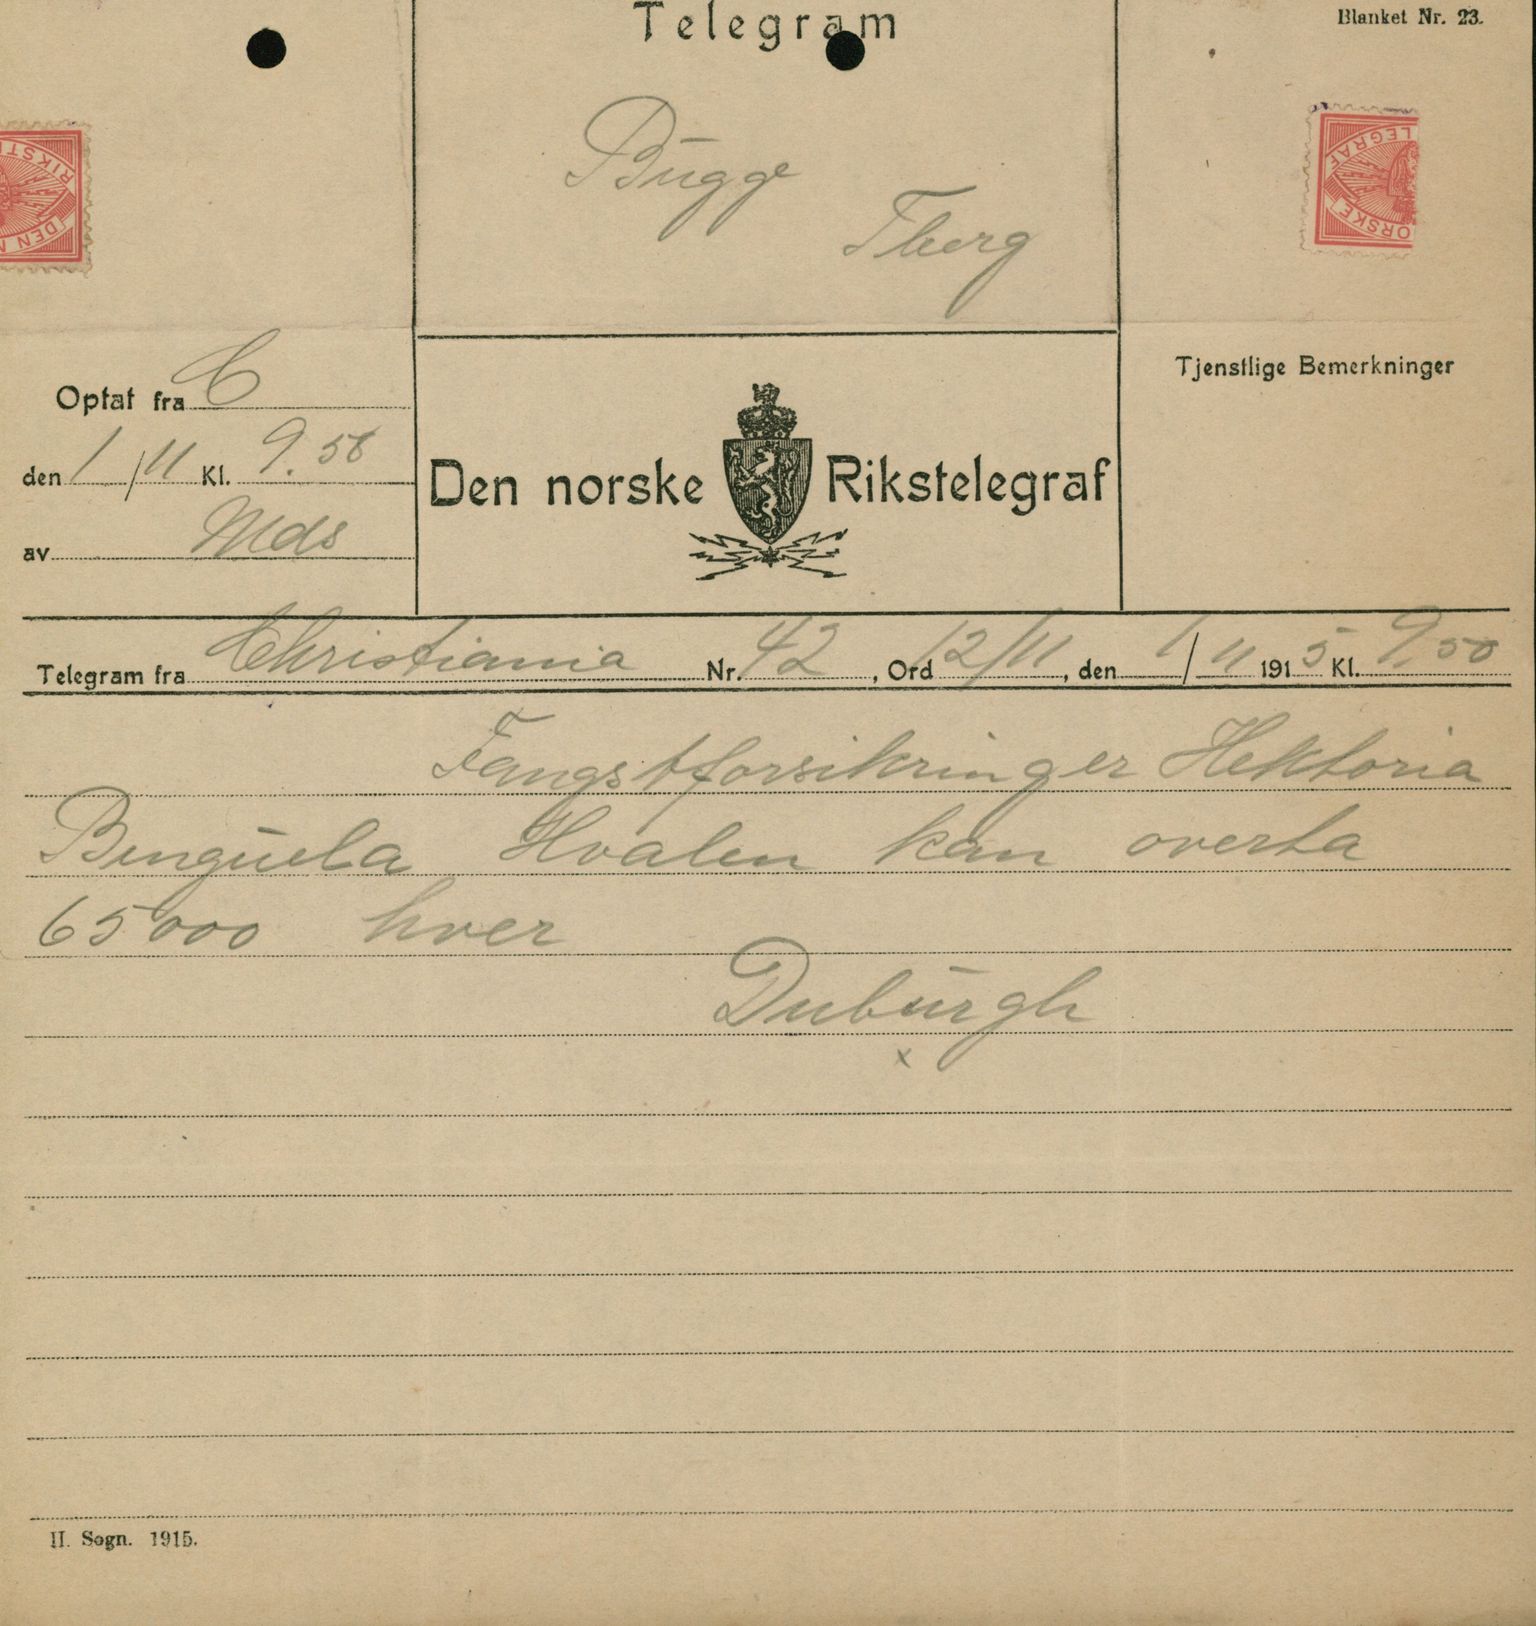 Telegram
Blanket Nr. 23.
Bugge
Tberg
RIKSTE
DEN N
LEGRAF
ORSKE
Optat fra C
den 1/11 Kl. 9.58
av Mds
Den norske Rikstelegraf
Tjenstlige Bemerkninger
Telegram fra Christiania Nr. 42, Ord 12/11, den 1/11 1915 Kl. 9.50
Fangstforsikringer Hektoria
Benguela Hvalen kan overta
65000 hver
Duburgh
x
II. Sogn. 1915.